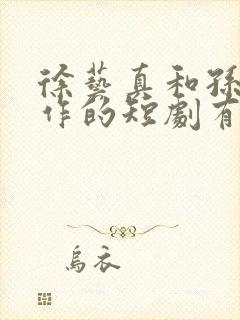 徐藝真和孫
作的短劇有
烏衣